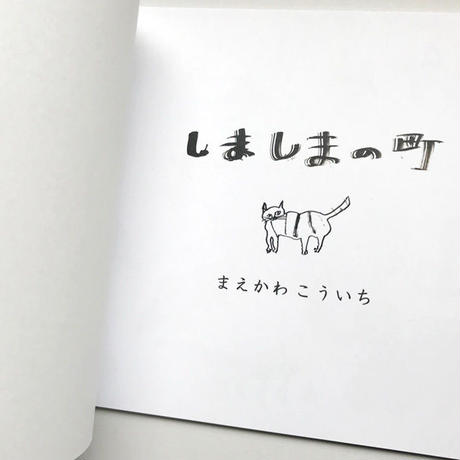 しましまの町
まえかわこういち